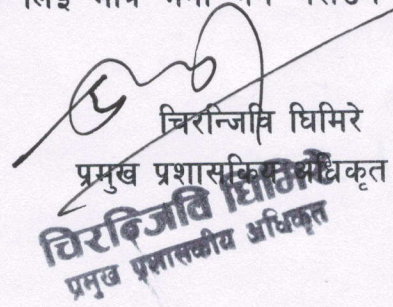 चिरन्जिवि घिमिरे
प्रमुख प्रशासकिय अधिकृत
चिरन्जिवि घिमिरे
प्रमुख प्रसासकीय अधिकृत